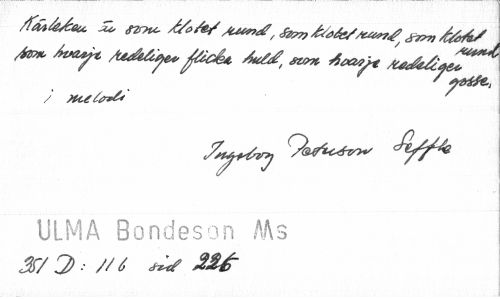 Kärleken är som klotet rund, som klotet rund, som klotet rund
som hvarje redeliger flicka huld, som hvarje redeliger gosse.
1 melodi
Ingeborg Peterson Seffle
ULMA Bondeson Ms
351 D: 116 sid 226